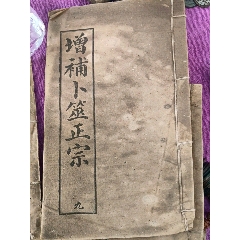 增補卜筮正宗
九